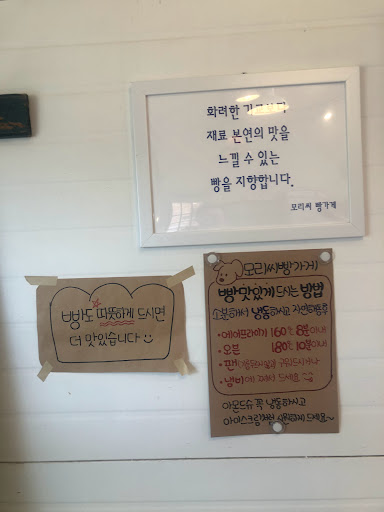 화려한 기교보다
재료 본연의 맛을
느낄 수 있는
빵을 지향합니다.
모리씨 빵가게
빵도 따뜻하게 드시면
더 맛있습니다
모리씨빵가게
빵 맛있게 드시는 방법
소분해서 냉동하시고 자연해동후
• 에어프라이기 160℃ 8분이내
• 오븐 180℃ 10분이내
• 팬 구워드시거나
• 냄비에 쪄서 드세요
아몬드슈 꼭 냉동하시고
아이스크림처럼 시원하게 드세요~